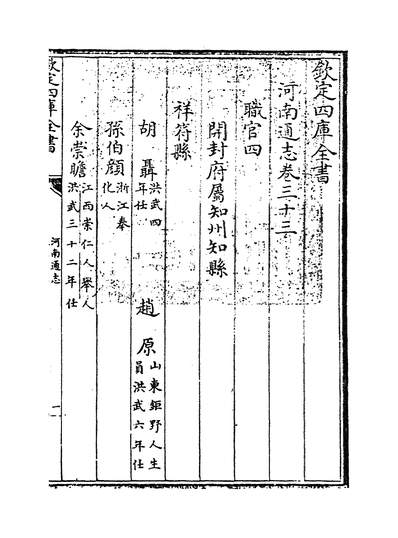 欽定四庫全書
河南通志卷三十三
職官四
開封府屬知州知縣
祥符縣
胡聶洪武四年任
趙原山東鉅野人生員洪武六年任
孫伯顔浙江奉化人
余崇瞻江西崇仁人舉人洪武三十二年任
欽定四庫全書
河南通志
一